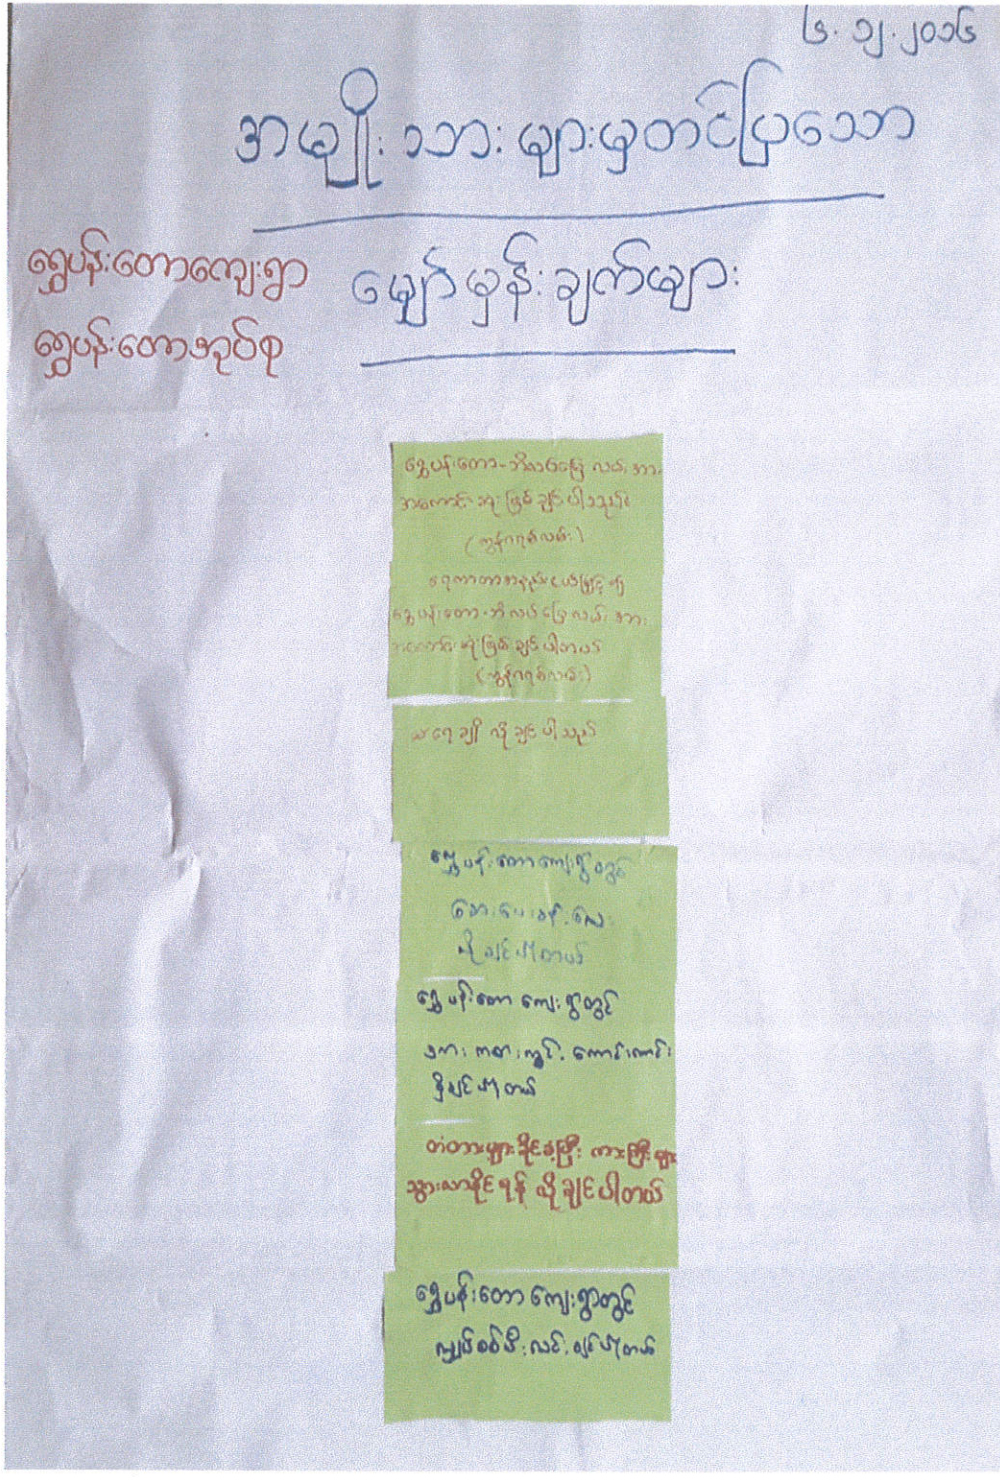 ၆.၁၂.၂၀၁၆
အမျိုးသားများမှတင်ပြသော
မျှော်မှန်းချက်များ
ရွှေပန်းတောကျေးရွာ
ရွှေပန်းတောအုပ်စု
ရွှေပန်းတော-ဘိလပ်မြေ လမ်းအား
အကောင်းဆုံး ဖြစ်ချင်ပါသည်။
(ကွန်ကရစ်လမ်း)
ရွှေပန်းတော-ဘိလပ်မြေလမ်းအား
အကောင်းဆုံးဖြစ်ချင်ပါတယ်
(ကွန်ကရစ်လမ်း)
ရေချို လိုချင်ပါသည်
ရွှေပန်းတောကျေးရွာတွင်
ဆေးပေးခန်းလေး
လိုချင်ပါတယ်
ရွှေပန်းတော ကျေးရွာတွင်
ကစားကွင်း ကောင်းကောင်း
ရှိချင်ပါတယ်
တံတားများခိုင်ခံ့ပြီး ကားကြီးများ
သွားလာနိုင်ရန် လိုချင်ပါတယ်
ရွှေပန်းတော ကျေးရွာတွင်
လျှပ်စစ်မီးလင်းချင်ပါတယ်